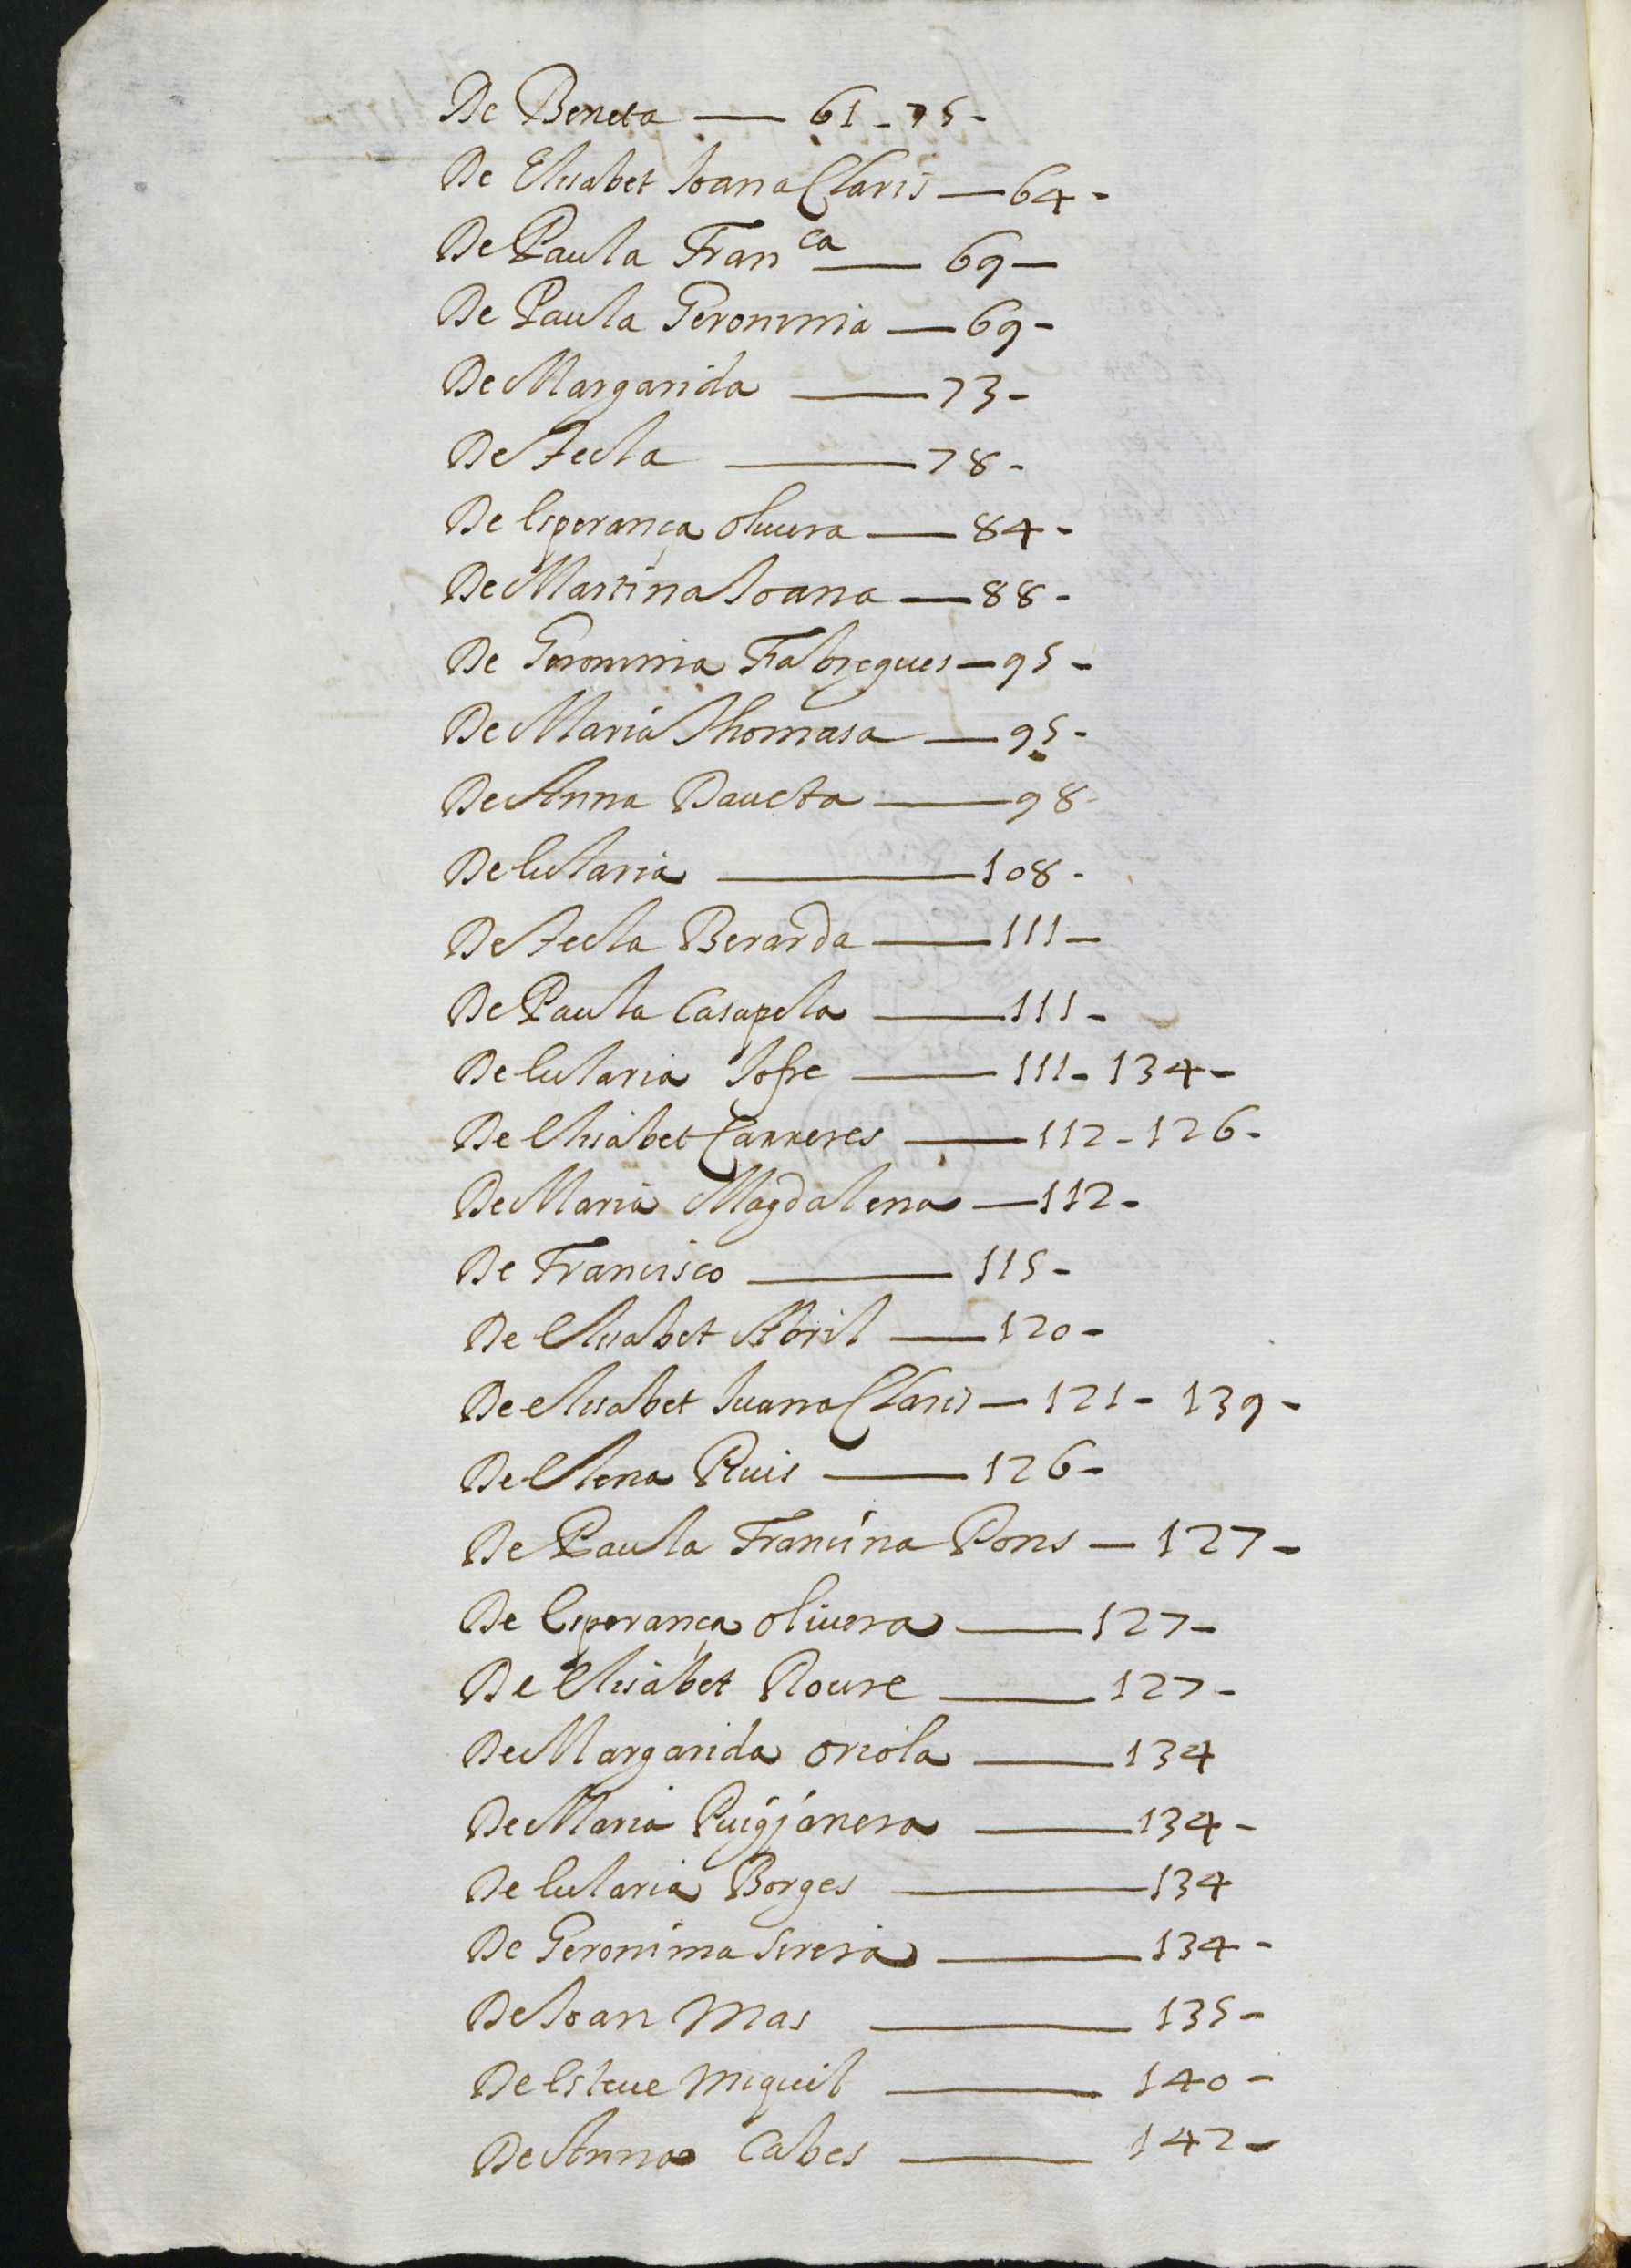 De Beneta — 61 - 75 -
De Elisabet Ioana Claris — 64 -
De Paula Fran^ca — 69 —
De Paula Geronima — 69 -
De Margarida — 73 -
De Tecla — 78 -
De Esperança oliuera — 84 -
De Martina Ioana — 88 -
De Geronima Fabregues — 95 -
De Maria Thomasa — 95 -
De Anna Daueta — 98 -
De Eularia — 108 -
De Tecla Berarda — 111 —
De Paula Casapela — 111 -
De Eularia Iofre — 111 - 134 -
De Elisabet Carreres — 112 - 126 -
De Maria Magdalena — 112 -
De Francisco — 115 -
De Elisabet Abril — 120 -
De elisabet Iuana Claris — 121 - 139 -
De Elena Ruis — 126 -
De Paula Francina Pons — 127 -
De Esperança oliuera — 127 -
De Elisabet Roure — 127 -
De Margarida oriola — 134
De Maria Puigjanera — 134 -
De Eularia Borges — 134
De Geronima Sirera — 134 -
De Ioan Mas — 135 -
De Esteue Miquel — 140 -
De Anna Cabes — 142 -